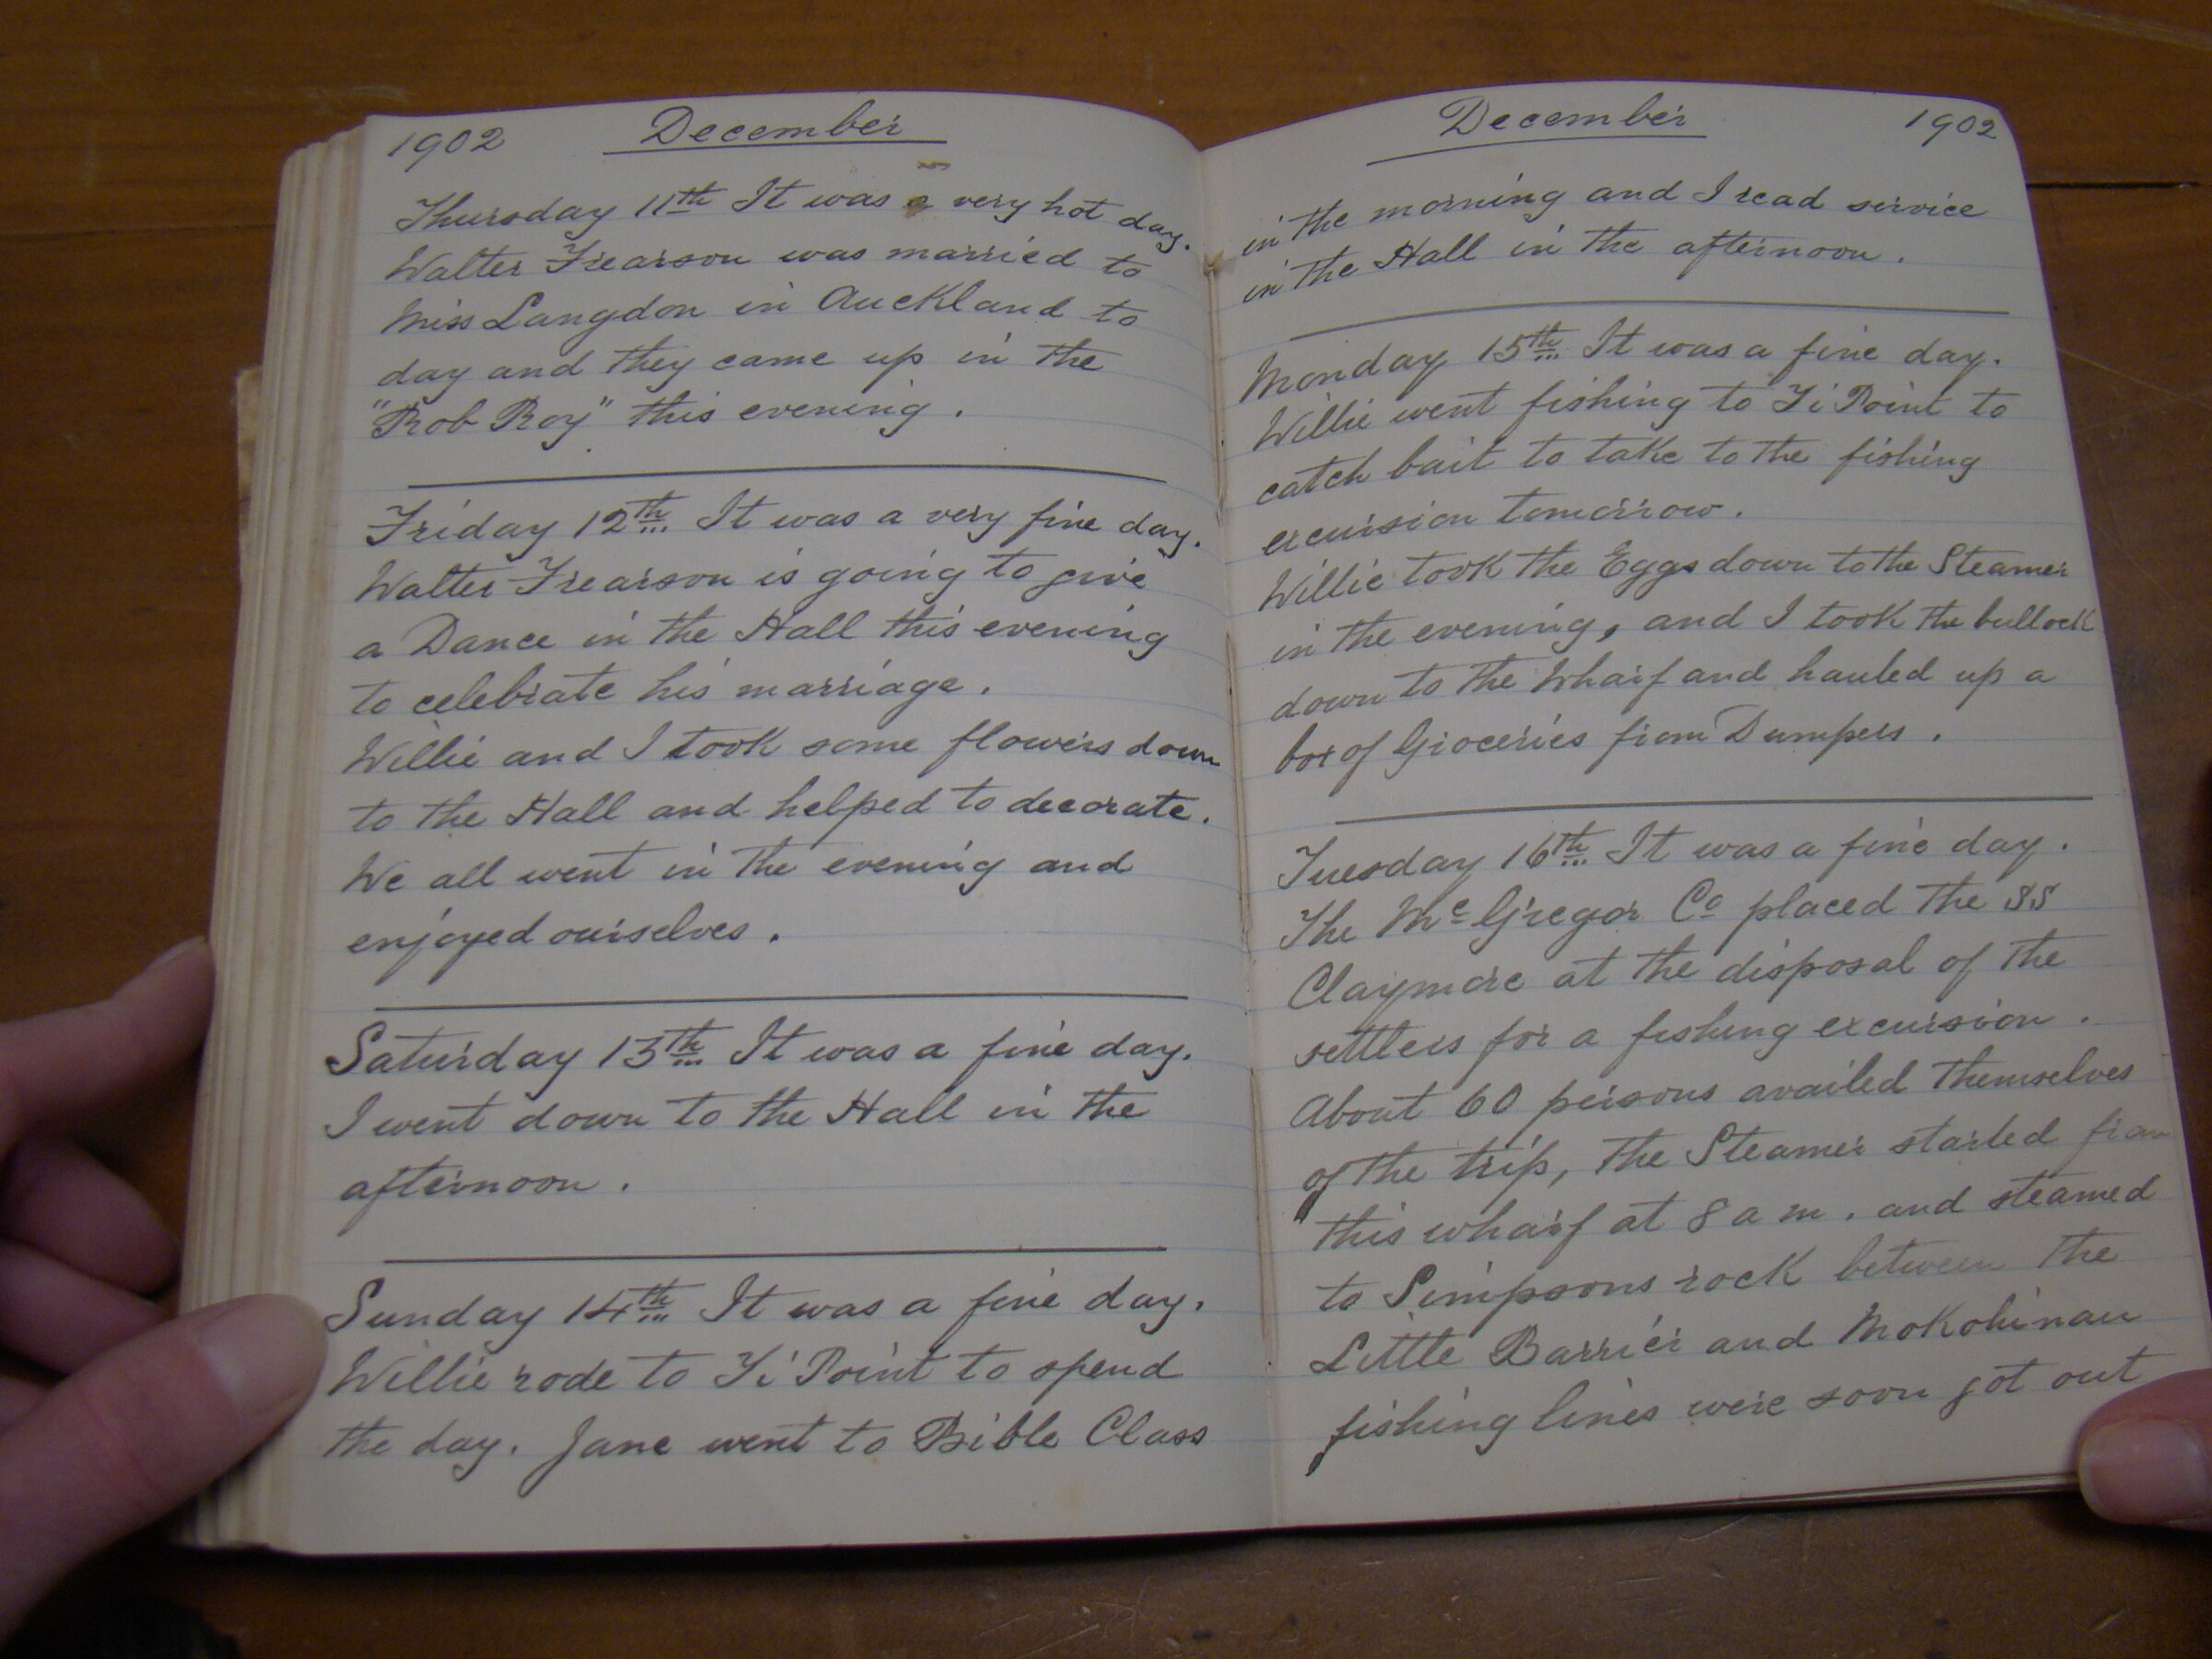 1902 December
Thursday 11th It was a very hot day.
Walter Frearson was married to
Miss Langdon in Auckland to
day and they came up in the
"Rob Roy" this evening.
Friday 12th It was a very fine day.
Walter Frearson is going to give
a Dance in the Hall this evening
to celebrate his marriage.
Willie and I took some flowers down
to the Hall and helped to decorate.
We all went in the evening and
enjoyed ourselves.
Saturday 13th It was a fine day.
I went down to the Hall in the
afternoon.
Sunday 14th It was a fine day.
Willie rode to Ti Point to spend
the day. Jane went to Bible Class
December 1902
in the morning and I read service
in the Hall in the afternoon.
Monday 15th It was a fine day.
Willie went fishing to Ti Point to
catch bait to take to the fishing
excursion tomorrow.
Willie took the Eggs down to the Steamer
in the evening, and I took the bullock
down to the Wharf and hauled up a
box of Groceries from Dumpers.
Tuesday 16th It was a fine day.
The McGregor Co placed the SS
Claymore at the disposal of the
settlers for a fishing excursion.
About 60 persons availed themselves
of the trip, the Steamer started from
this wharf at 8 a m. and steamed
to Simpsons rock between the
Little Barrier and Mokohinau
fishing lines were soon got out